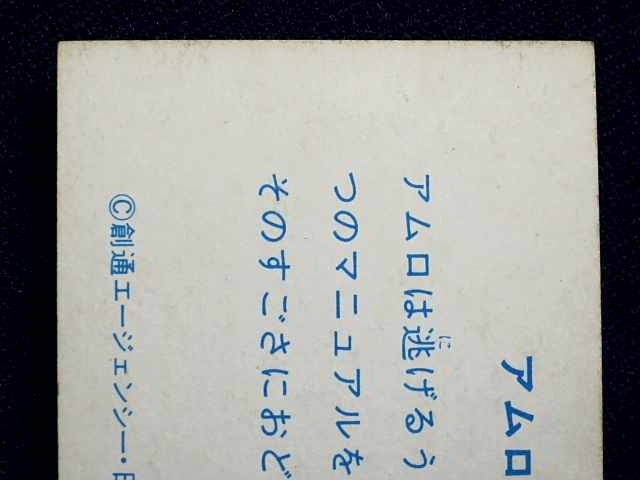 アムロ
アムロは逃げるう
つのマニュアルを
そのすごさにおど
©創通エージェンシー・日